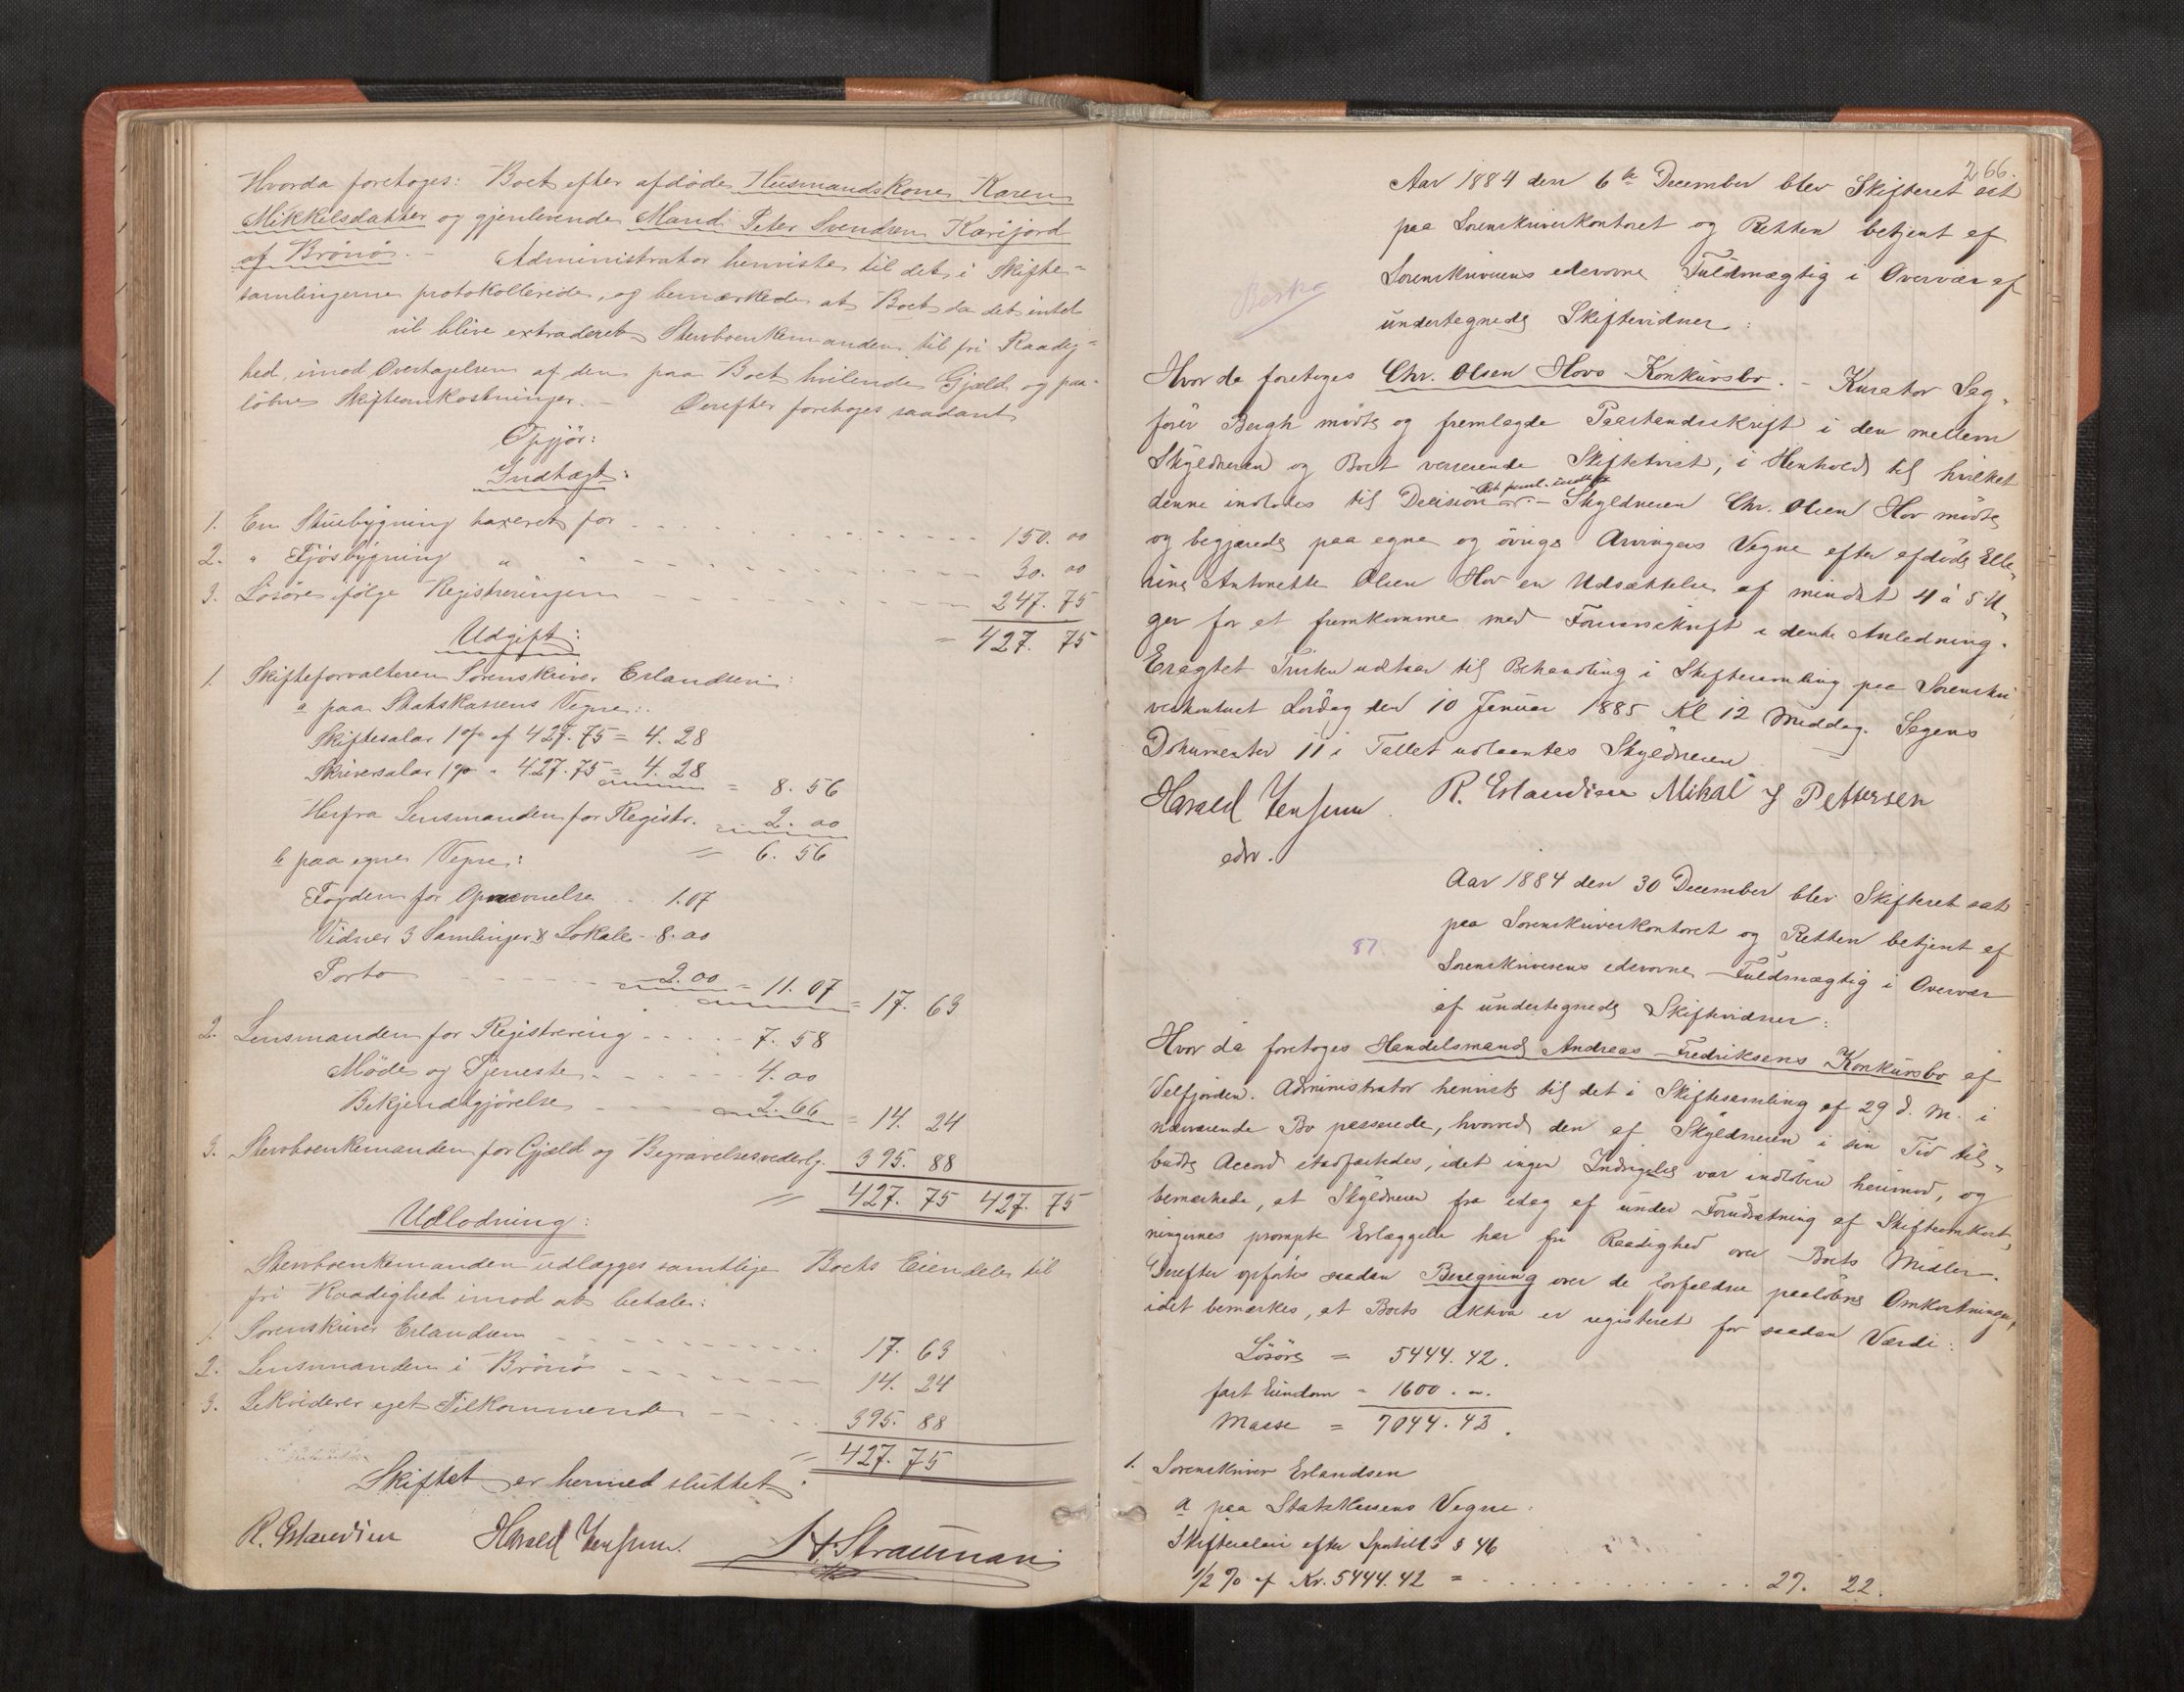 Hvorda foretoges: Boet efter afdöde Husmandskone Karen
Mikkelsdatter og gjenlevende Mand Peter Svendsen Karifjord
af Brönö. - Administrator henviste til det i Skifte=
samlingerne protokollerede, og bemærkede at Boet da det intet
vil blive extraderet Stervboenkemanden til fri Raadig=
hed, imod Overtagelsen af den paa Boet hvilende Gjæld og paa=
löbne Skifteomkostninger. - Derefter foretoges saadant
Opgjör:
Indtægt:
1. En Stuebygning taxeret for 150. 00
2. " Fjösbygning " " 30. 00
3. Lösöre ifölge Registreringen 247. 75
= 427. 75
Udgift:
1. Skifteforvalteren Sorenskriver Erlandsen:
a paa Statskassens Vegne:
Skiftesalar 1 % af 427.75 = 4. 28
Skriversalar 1 % " 427.75 = 4. 28 = 8. 56
Herfra Lensmanden for Registr. 2. 00
b paa egne Vegne: = 6. 56
Fogden for Opnævnelse 1.07
Vidner 3 Samlinger & Lokale - 8. 00
Porto 2.00 = 11. 07 = 17. 63
2. Lensmanden for Registrering 7. 58
Möde og Tjeneste 4. 00
Bekjendtgjörelse 2. 66 = 14. 24
3. Stervboenkemanden for Gjæld og Begravelsesvederlg. 395. 88
= 427. 75 427. 75
Udlodning:
Stervboenkemanden udlægges samtlige Boets Eiendele til
fri Raadighed imod at betale:
1. Sorenskriver Erlandsen 17. 63
2. Lensmanden i Brönö 14. 24
3. Likviderer eget Tilkommende 395. 88
= 427. 75
Skiftet er hermed sluttet
R. Erlandsen Harald Jenssen. H. Straumann
266.
Aar 1884 den 6te December blev Skifteret sat
paa Sorenskriverkontoret og Retten betjent af
Sorenskriverens edsvorne Fuldmægtig i Overvær af
undertegnede Skiftevidner:
Hvor da foretoges Chr. Olsen Hovs Konkursbo. - Kurator Sag-
förer Bergh mödte og fremlagde Paastandsskrift i den mellem
Skyldneren og Boet verserende Skiftetvist, i Henhold til hvilket
denne indlodes til Decision - Skyldneren Chr. Olsen Hov mödte
og begjærede paa egne og övrige Arvingers Vegne efter afdöde Elle-
rine Antonette Olsen Hov en Udsættelse af mindst 4 à 5 U-
ger for at fremkomme med Forsvarsskrift i dente Anledning.
Eragtet Tvisten udstaar til Behandling i Skiftesamling paa Sorenskri
verkontoret Lördag den 10 Januar 1885 Kl 12 Middag. Sagens
Dokumenter 11 i Tallet udlaantes Skyldneren
Harald Jenssen R. Erlandsen Mikal J Pettersen
edsv.
Aar 1884 den 30 December blev Skifteret sat
87. paa Sorenskriverkontoret og Retten betjent af
Sorenskriverens edsvorne Fuldmægtig i Overvær
af undertegnede Skiftevidner:
Hvor da foretoges Handelsmand Andreas Fredriksens Konkursbo af
Velfjorden. Administrator henviste til det i Skiftesamling af 29 d. M. i
nærværende Bo passerede, hvorved den af Skyldneren i sin Tid til-
budte Accord stadfæstedes, idet ingen Indsigelse var indlöben herimod, og
bemærkede, at Skyldneren fra idag af under Forudsætning af Skifteomkost-
ningernes prompte Erlæggelse har fri Raadighed over Boets Midler.
Derefter opförtes saadan Beregning over de forfaldne paalöbne Omkostninger,
idet bemærkes, at Boets Aktiva er registeret for saadan Værdi:
Lösöre = 5444. 42.
fast Eiendom - 1600. -.
Masse = 7044. 43.
1. Sorenskriver Erlandsen
a paa Statskassens Vegne:
Skiftesalær efter Sportell § 46
1/2 % af Kr. 5444. 42 = 27. 22.